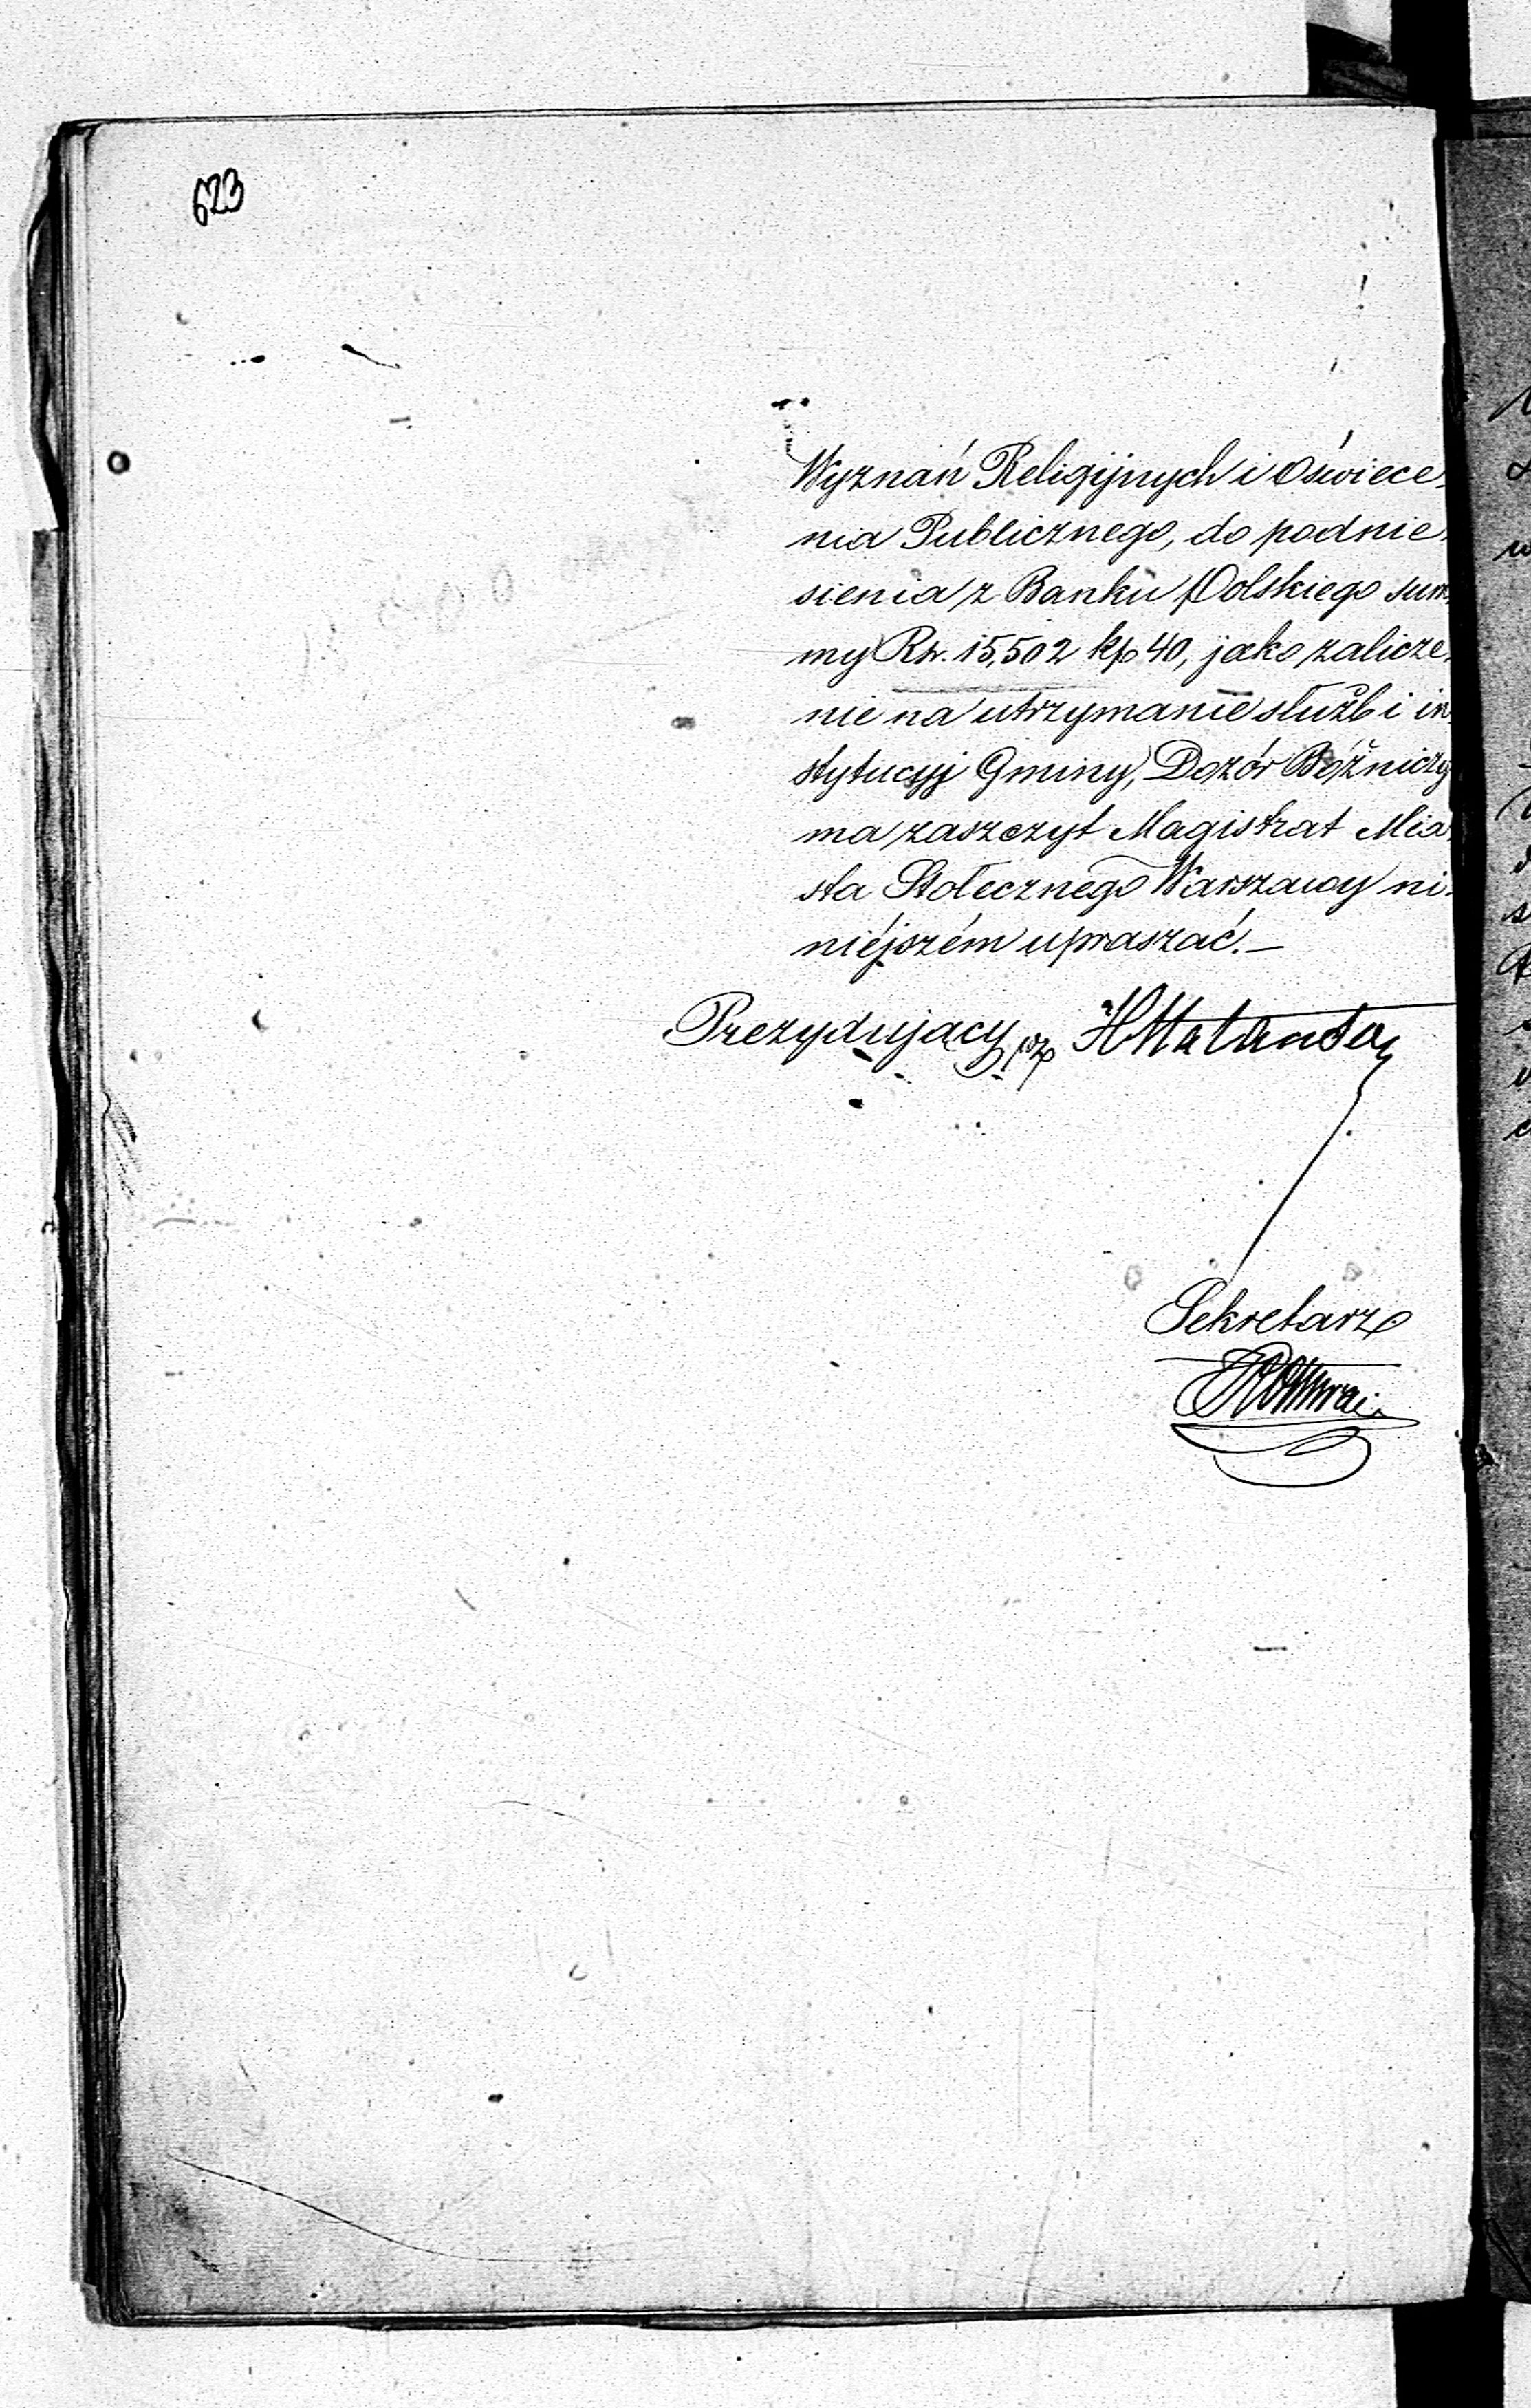 623
Wyznań Religijnych i Oświece-
nia Publicznego, do podnie-
sienia z Banku Polskiego sum-
my Rsr. 15,502 kp 40, jako zalicze-
nie na utrzymanie służb i in-
stytucyj Gminy, Dozór Bóżniczy
ma zaszczyt Magistrat Mia-
sta Stołecznego Warszawy ni-
niéjszém upraszać.—
Prezydujący
Sekretarz